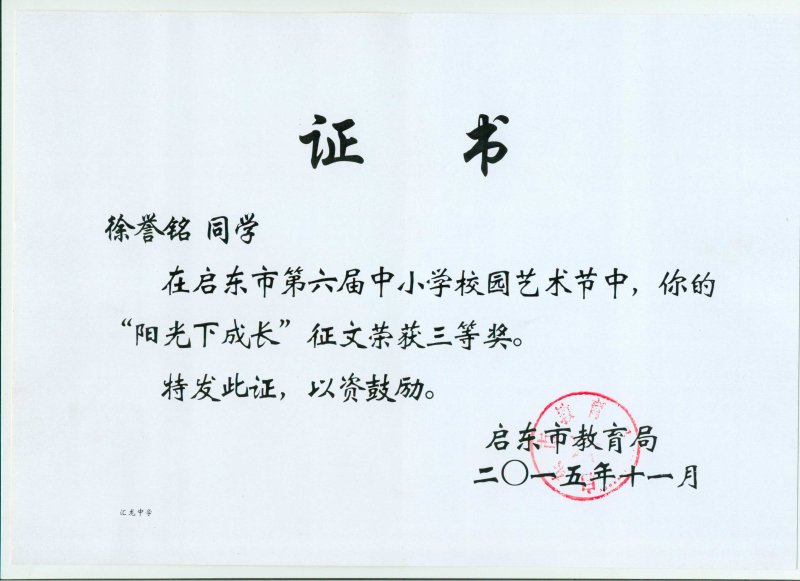 证 书
徐誉铭 同学
在启东市第六届中小学校园艺术节中，你的
“阳光下成长”征文荣获三等奖。
特发此证，以资鼓励。
启东市教育局
二〇一五年十一月
汇龙中学